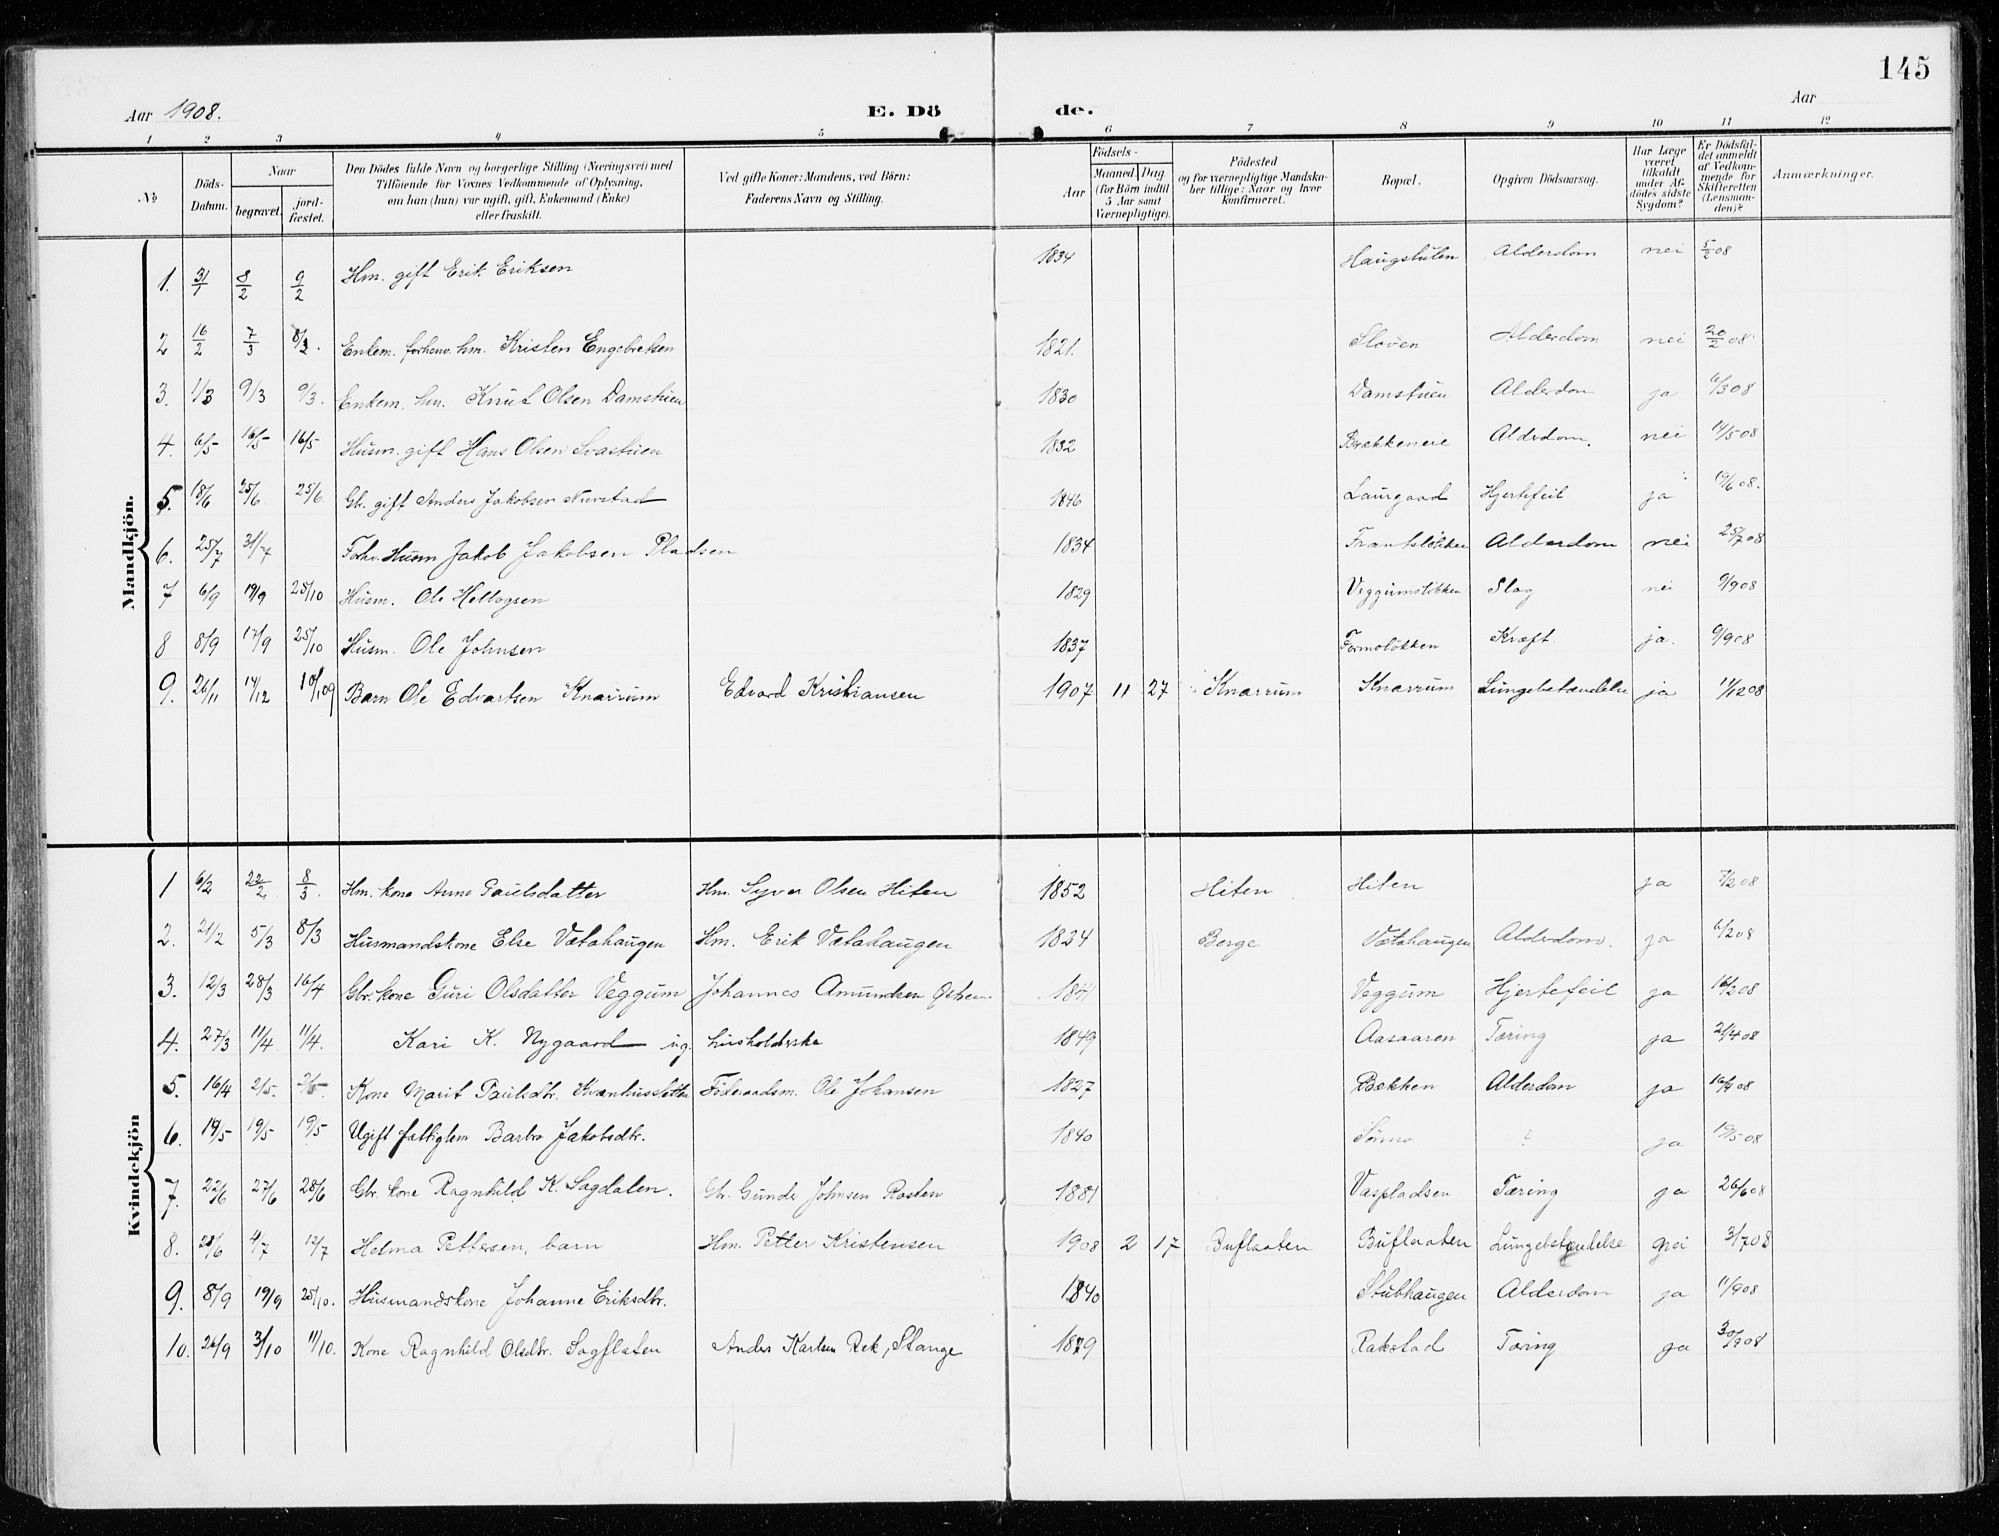 145
Aar 1908. E. Dö de. Aar
1 2 3 4 5 6 7 8 9 10 11 12
No
Döds-Datum.
Naar
begravet.
jord-fæstet.
Den Dödes fulde Navn og borgerlige Stilling (Næringsvei) med
Tilföiende for Voxnes Vedkommende af Oplysning,
om han (hun) var ugift, gift, Enkemand (Enke)
eller fraskilt.
Ved gifte Koner: Mandens, ved Börn:
Faderens Navn og Stilling.
Födsels-
Aar
Maaned Dag
(for Börn indtil
5 Aar samt
Værnepligtige).
Födested
og for værnepligtige Mandska-
ber tillige: Naar og hvor
konfirmeret.
Bopæl.
Opgiven Dödsaarsag.
Har Læge
været
tilkaldt
under Af-
dödes sidste
Sygdom?
Er Dödsfal-
det anmeldt
af Vedkom-
mende for
Skifteretten
(Lensman-
den)?
Anmærkninger.
Mandkjön.
1. 31/1 8/2 9/2 Hm. gift Erik Eriksen 1834 Haugstulen Alderdom nei 5/2 08
2 16/2 7/3 8/3. Enkem. forhenv. hm. Kristen Engebretsen 1821. Sloven Alderdom nei 20/2 08
3. 1/3 9/3 9/3. Enkem. hm. Knut Olsen Damstuen 1830 Damstuen Alderdom ja 6/3 08
4. 6/5 16/5 16/5 Husm. gift Hans Olsen Svastuen 1832 Brækkeneie Alderdom. nei 14/5 08
5. 18/6 25/6 25/6. Gbr. gift Anders Jakobsen Nurstad 1846 Laurgaard Hjertefeil ja 19/6 08.
6. 25/7 31/7 Forhv. Husm Jakob Jakobsen Pladsen 1834 Alderdom nei 25/7 08
7 6/9 19/9 25/10 Husm. Ole Hellogsen 1829 Veggumsløkken Slag nei 9/9 08
8 8/9 17/9 25/10 Husm. Ole Johnsen 1837 Formoløkken Kræft. ja. 9/9 08
9. 26/11 14/12 10/1 09 Barn Ole Edvartsen Knarrum Edvard Kristiansen 1907 11 27 Knarrum Knarrum Lungebetændelse ja 11/12 08
Kvindekjön
1 6/2 22/2 8/3. Hm. kone Anne Paulsdatter Hm. Syver Olsen Hiten 1852 Hiten Hiten ja 7/2 08
2. 21/2 5/3 8/3 Husmandskone Else Vætahaugen Hm. Erik Vætahaugen 1824 Berge Vætahaugen Alderdom. ja 6/2 08
3. 12/3 28/3 16/4 Gbr. kone Guri Olsdatter Veggum Johannes Amundsen 1841 Veggum Hjertefeil ja 16/2 08
4. 27/3 11/4 11/4. Kari K. Nygaard ug. husholderske 1849 Aasaaren Tæring ja 21/4 08
5. 16/4 2/5. 2/5. Kone Marit Paulsdtr. Kvænhussletten Føderaadsm. Ole Johansen 1827 Bækken Alderdom ja 16/4 08
6. 14/5 19/5 19/5 Ugift fattiglem Barbro Jakobsdtr. 1840 Sørmo ? ja 19/5 08
7. 22/6 27/6 28/6 Gbr. kone Ragnhild K. Sagdalen. Gbr. Gunder Johnsen Rosten 1881 Vaspladsen Tæring ja 26/6 08
8. 28/6 4/7 12/7 Helma Pettersen, barn Hm. Petter Kristensen 1908 2 17 Buflaaten Buflaaten Lungebetændelse nei 3/7 08
9. 8/9 19/9 25/10. Husmandskone Johanne Eriksdtr. 1840 Stubhaugen Alderdom ja 11/9 08
10. 26/9 3/10 11/10. Kone Ragnhild Olsdtr. Sagflaten Anders Karlsen Rek, Stange 1879 Rakstad Tæring ja 30/9 08